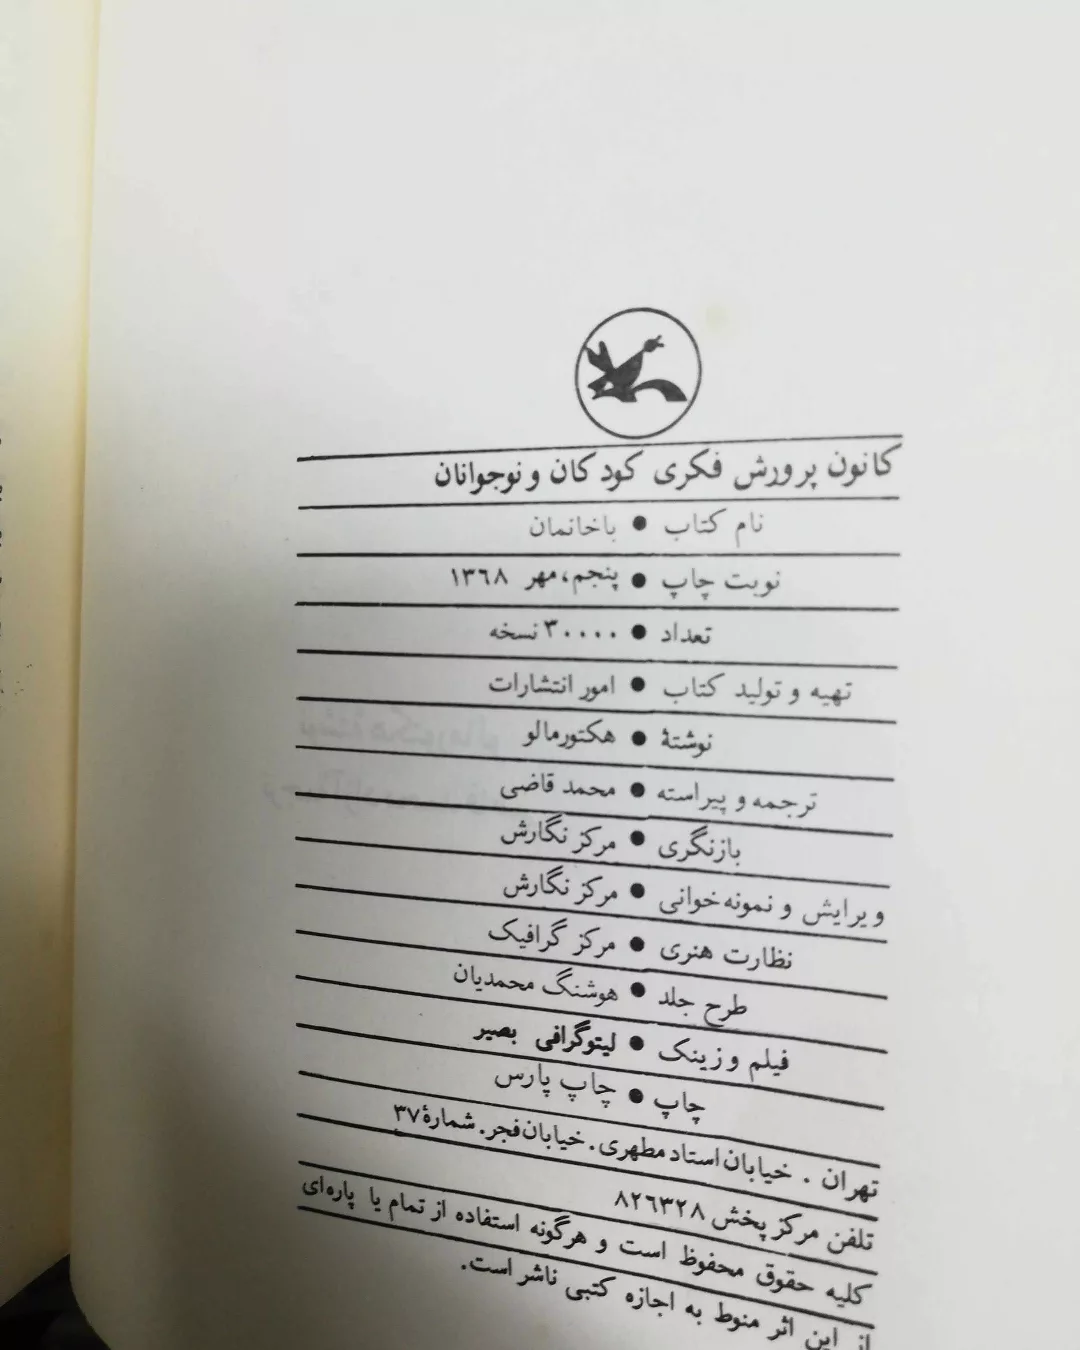 کانون پرورش فکری کودکان و نوجوانان
نام کتاب ● باخانمان
نوبت چاپ ● پنجم، مهر ۱۳۶۸
تعداد ● ۳۰۰۰۰ نسخه
تهیه و تولید کتاب ● امور انتشارات
نوشتهٔ ● هکتورمالو
ترجمه و پیراسته ● محمد قاضی
بازنگری ● مرکز نگارش
ویرایش و نمونه‌خوانی ● مرکز نگارش
نظارت هنری ● مرکز گرافیک
طرح جلد ● هوشنگ محمدیان
فیلم و زینک ● لیتوگرافی بصیر
چاپ ● چاپ پارس
تهران . خیابان استاد مطهری . خیابان فجر . شمارهٔ ۳۷
تلفن مرکز پخش ۸۲۶۳۲۸
کلیه حقوق محفوظ است و هرگونه استفاده از تمام یا پاره‌ای
از این اثر منوط به اجازه کتبی ناشر است.